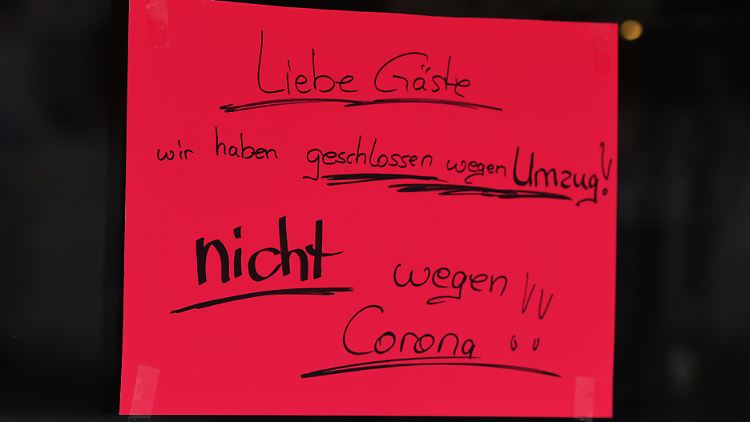 Liebe Gäste
wir haben geschlossen wegen Umzug!
nicht wegen
Corona !!